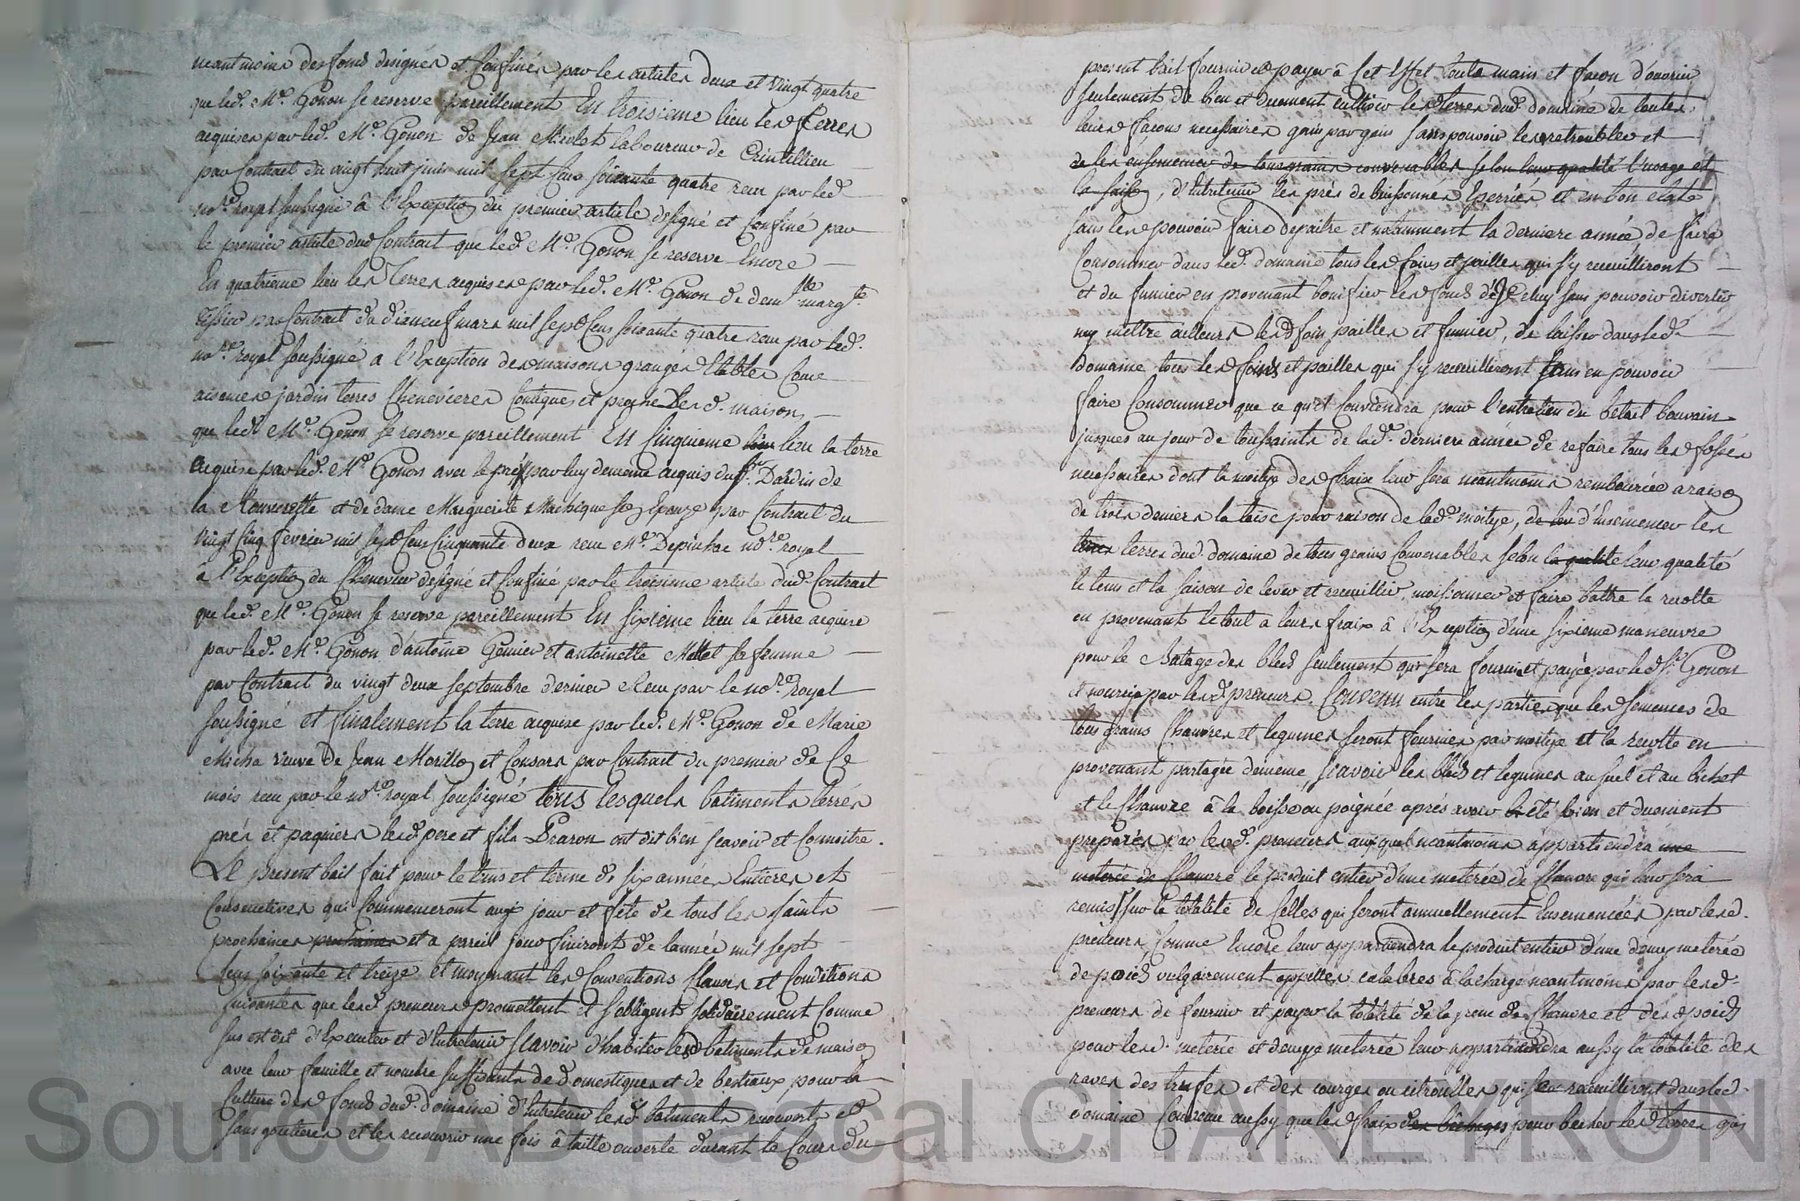 neantmoins des fond designés et Confinés par les articles deux et vingt quatre
que led. Me. Gonon se reserve pareillement En troisieme lieu les Terres
acquises par led. Me. Gonon de Jean laboureur de Crintillieu
par Contract du vingt huit juin mil sept Cens soixante quatre reçu par led
nore. royal soussigné à l'Exception du premier article designé et Confiné par
le premier article dud Contract que led. Me. Gonon se reserve Encore
En quatrieme lieu les Terres acquises par led. Me. Gonon de demlle margte
par Contract du dixneuf mars mil sept Cens soixante quatre reçu par led.
nore. royal soussigné a l'Exception des maisons granges Etables Cour
aisances jardin terres Chenevieres Contigues et proche lesd. maisons
que led. Me. Gonon se reserve pareillement En Cinquieme lieu lieu la terre
acquise par led. Me. Gonon avec le pré par luy demême acquis du sr. Dardin de
la et de dame Marguerite son Epouze par Contract du
vingt Cinq fevrier mil sept Cens Cinquante deux reçu Me. nore. royal
à l'Exception du Chenevier designé et Confiné par le troisieme article dud Contract
que led. Me. Gonon se reserve pareillement En sixieme lieu la terre acquise
par led. Me. Gonon d'antoine et antoinette sa femme
par Contract du vingt deux septembre dernier Reçu par le nore. royal
soussigné et finalement la terre acquise par led. Me. Gonon de Marie
Micha veuve de Jean et Consors par Contract du premier de Ce
mois reçu par le nore. royal soussigné tous lesquels batiments terres
prés et paquiers lesd. pere et fils Praron ont dit bien scavoir et Connoitre.
Le present bail fait pour le tems et terme de six années Entieres et
Consecutives qui Commenceront aux jour et fête de tous les saints
prochaines prochaines et a pareil jour finiront de l'année mil sept
Cens soixante et treize et moyenant les Conventions Clauses et Conditions
suivantes que lesd. preneurs promettent et s'obligent solidairement Comme
sus est dit d'Executer et d'Entretenir scavoir d'habiter lesd batiments de maison
avec leur famille et nombre suffisant de domestiques et de bestiaux pour la
Culture des fonds dud. domaine d'Entretenir lesd. batiments recouverts et
sans goutieres et les recouvrir une fois à taille ouverte durant le Cours du
present bail fournir et payer à Cet Effet toute main et façon d'ouvrier
seulement de bien et duement cultiver les Terres dud. domaine de toutes
leurs façons necessaires sans pouvoir les retroubler et
de les ensemencer de tous grains convenables selon leur qualité l'usage et
la saison, d'Entretenir les prés de buissonnes Epierrés et en bon etat
sans les pouvoir faire depaitre et notamment la derniere année de faire
Consommer dans led. domaine tous les foins et pailles qui s'y recueilliront
et du fumier en provenant bonifier les fonds d'iCeluy sans pouvoir divertir
ny mettre ailleurs lesd foin pailles et fumier, de laisser dans led
domaine tous les foins et pailles qui s'y recueilliront sans en pouvoir
faire Consommer que ce qu'il Conviendra pour l'entretien du betail
jusques au jour de toussaints de lad. derniere année de refaire tous les fossés
necessaires dont la moitye des fraix leur sera neantmoins remboursée a raison
de trois deniers la toise pour raison de lade moitye, de d'Ensemencer les
terres terres dud. domaine de tous grains Convenables selon la qualité leur qualité
le tems et la saison de lever et recueillir, moissonner et faire battre la recolte
en provenant le tout a leurs fraix à l'Exception d'une sixieme maneuvre
pour le Batage des bleds seulement qui sera fournie et payée par led sr. Gonon
et nourrie par lesd preneurs. Convenu entre les parties que les semences de
tous grains Chanvres et legumes seront fournies par moitye et la recolte en
provenant partagée demême scavoir les bleds et legumes au et au bichet
et le Chanvre à la ou poignée après avoir été bien et duement
preparés par lesd. preneurs auxquels neantmoins appartiendra une
meterée de Chanvre le produit entier d'une meterée de Chanvre qui leur sera
remis sur la totalité de Celles qui seront annuellement Ensemencées par lesd.
preneurs, Comme Encore leur appartiendra le produit entier d'une demy meterée
de poids vulgairement appellés à la charge neantmoins par lesd.
preneurs de fournir et payer la totalité de la de Chanvre et des poids
pour lesd. meterée et demye meterée leur appartiendra aussy la totalité des
raves des trufes et des courges ou citrouilles qui se recueilliront dans led.
domaine Convenu aussy que les fraix des pour becher les Terres
Source AD Pascal CHANEYRON